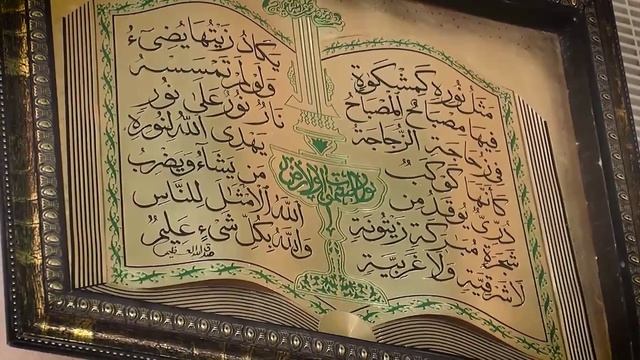 نور السموت والارض
مثل نوره كمشكوة
فيها مصباح المصباح
في زجاجة الزجاجة
كأنها كوكب
دري يوقد من
شجرة مبركة زيتونة
لا شرقية ولا غربية
يكاد زيتها يضيء
ولو لم تمسسه
نار نور على نور
يهدي الله لنوره
من يشاء ويضرب
الله الأمثل للناس
والله بكل شيء عليم